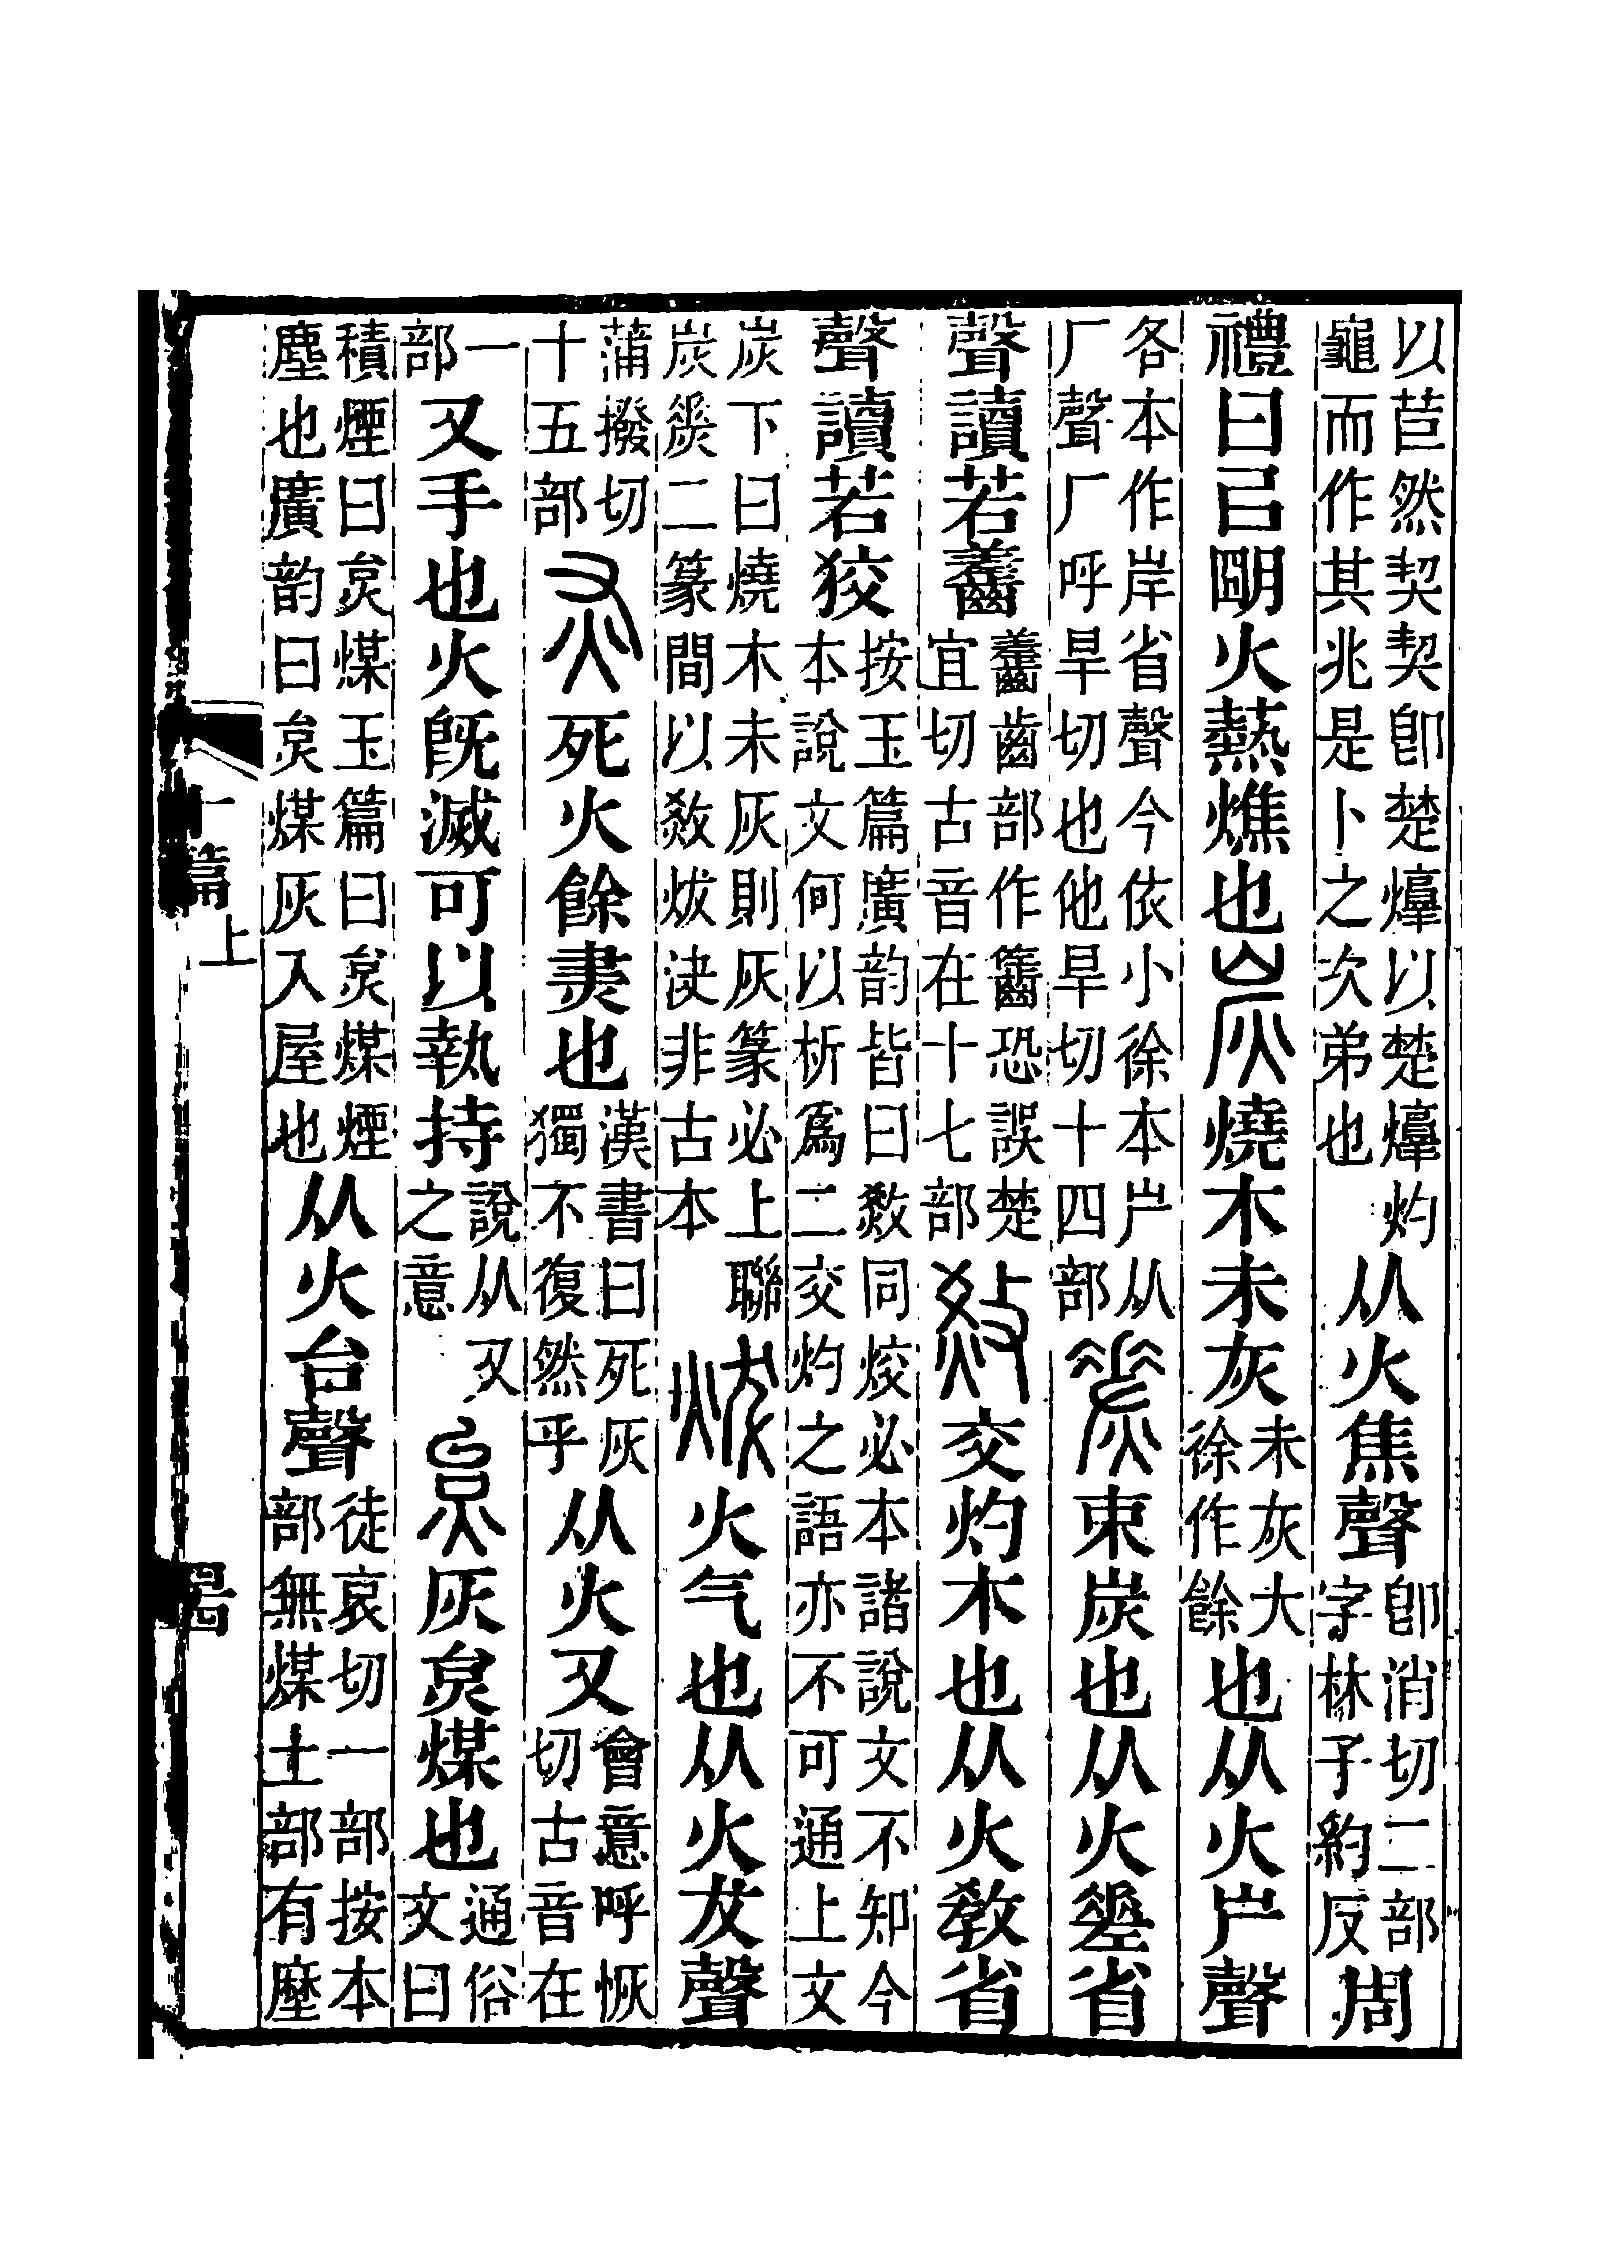 以苣然契契卽楚焞以楚焞灼龜而作其兆是卜之次弟也从火焦聲卽消切二部字林子約反周
禮曰㠯朙火爇燋也炭燒木未灰未灰大徐作餘也从火屵聲
各本作岸省聲今依小徐本屵从厂聲厂呼旱切屵他旱切十四部㷢束炭也从火𢀩省
聲讀若齹齹齒部作䶥恐誤楚宜切古音在十七部𤉧交灼木也从火敎省
聲讀若狡按玉篇廣韵皆曰𤉧同烄必本諸說文不知今本說文何以析爲二交灼之語亦不可通上文
炭下曰燒木未灰則灰篆必上聯炭㷢二篆間以𤉧炦決非古本炦火气也从火犮聲
蒲撥切十五部灰死火餘㶳也漢書曰死灰獨不復然乎从火又會意呼恢切古音在
一部又手也火旣滅可以執持說从又之意炱灰炱煤也通俗文曰
積煙曰炱煤玉篇曰炱煤煙塵也廣韵曰炱煤灰入屋也从火台聲徒哀切一部按本部無煤土部有塺
十篇上